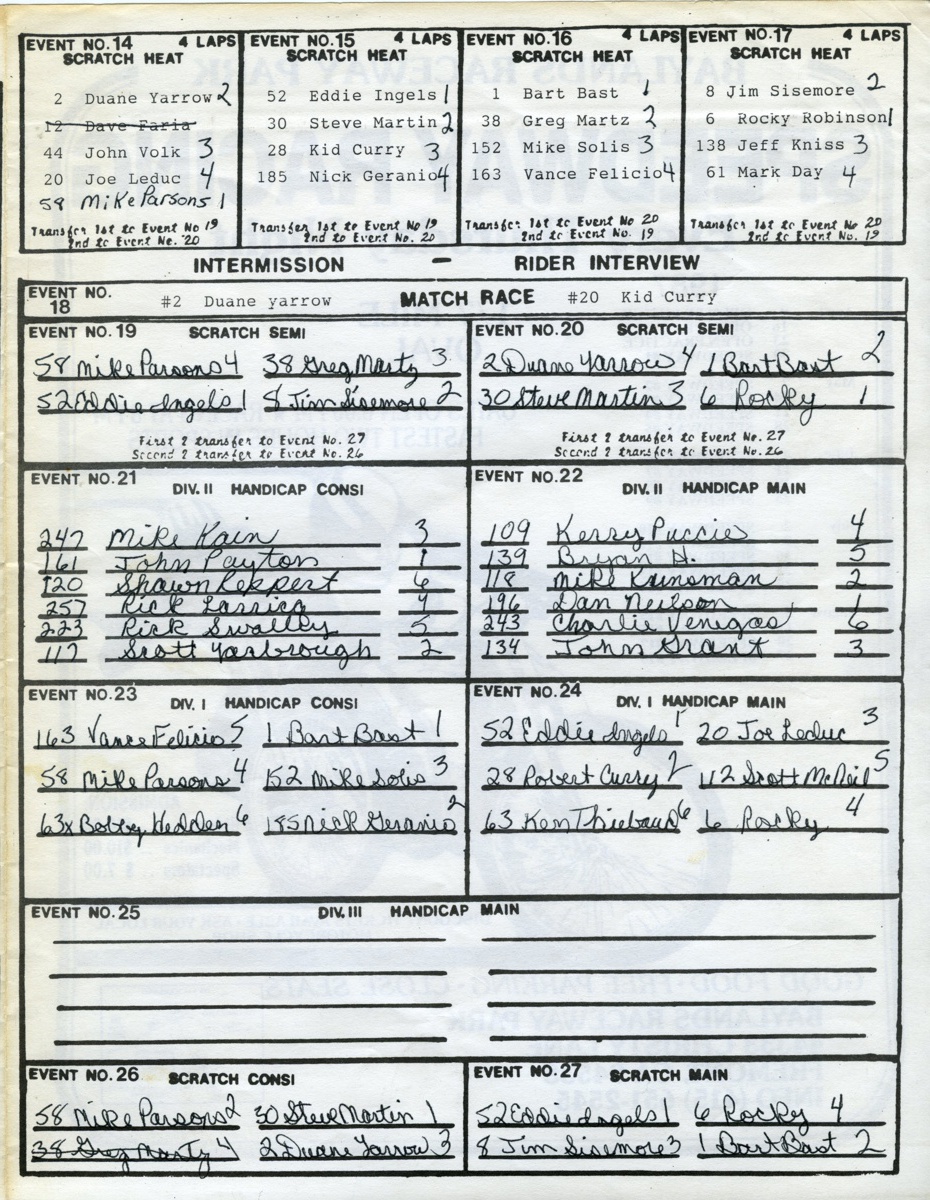 EVENT NO.14 4 LAPS
SCRATCH HEAT
2 Duane Yarrow 2
12 Dave Faria
44 John Volk 3
20 Joe Leduc 4
58 Mike Parsons 1
Transfer 1st to Event No 19
2nd to Event No. 20
EVENT NO.15 4 LAPS
SCRATCH HEAT
52 Eddie Ingels 1
30 Steve Martin 2
28 Kid Curry 3
185 Nick Geranio 4
Transfer 1st to Event No 19
2nd to Event No. 20
EVENT NO.16 4 LAPS
SCRATCH HEAT
1 Bart Bast 1
38 Greg Martz 2
152 Mike Solis 3
163 Vance Felicio 4
Transfer 1st to Event No. 20
2nd to Event No. 19
EVENT NO.17 4 LAPS
SCRATCH HEAT
8 Jim Sisemore 2
6 Rocky Robinson 1
138 Jeff Kniss 3
61 Mark Day 4
Transfer 1st to Event No. 20
2nd to Event No. 19
INTERMISSION - RIDER INTERVIEW
EVENT NO. 18 #2 Duane yarrow MATCH RACE #20 Kid Curry
EVENT NO.19 SCRATCH SEMI
58 Mike Parsons 4 38 Greg Martz 3
52 Eddie Ingels 1 8 Jim Sisemore 2
First 2 transfer to Event No. 27
Second 2 transfer to Event No. 26
EVENT NO.20 SCRATCH SEMI
2 Duane Yarrow 4 1 Bart Bast 2
30 Steve Martin 3 6 Rocky 1
First 2 transfer to Event No. 27
Second 2 transfer to Event No. 26
EVENT NO.21
DIV. II HANDICAP CONSI
247 Mike Kain 3
161 John Payton 1
120 Shawn Reppert 6
257 Rick 4
223 Rick Swalley 5
117 Scott Yarbrough 2
EVENT NO.22
DIV. II HANDICAP MAIN
109 Kerry Puccie 4
139 Bryan H. 5
118 Mike Kunsman 2
196 Dan Neilson 1
243 Charlie Venegas 6
134 John Grant 3
EVENT NO.23
DIV. I HANDICAP CONSI
163 Vance Felicio 5 1 Bart Bast 1
58 Mike Parsons 4 152 Mike Solis 3
63x Bobby Hedden 6 185 Nick Geranio 2
EVENT NO.24
DIV. I HANDICAP MAIN
52 Eddie Ingels 1 20 Joe Leduc 3
28 Robert Curry 2 112 Scott McNeil 5
63 Ken Thiebaud 6 6 Rocky 4
EVENT NO.25 DIV. III HANDICAP MAIN
EVENT NO.26 SCRATCH CONSI
58 Mike Parsons 2 30 Steve Martin 1
38 Greg Martz 4 2 Duane Yarrow 3
EVENT NO.27 SCRATCH MAIN
52 Eddie Ingels 1 6 Rocky 4
8 Jim Sisemore 3 1 Bart Bast 2